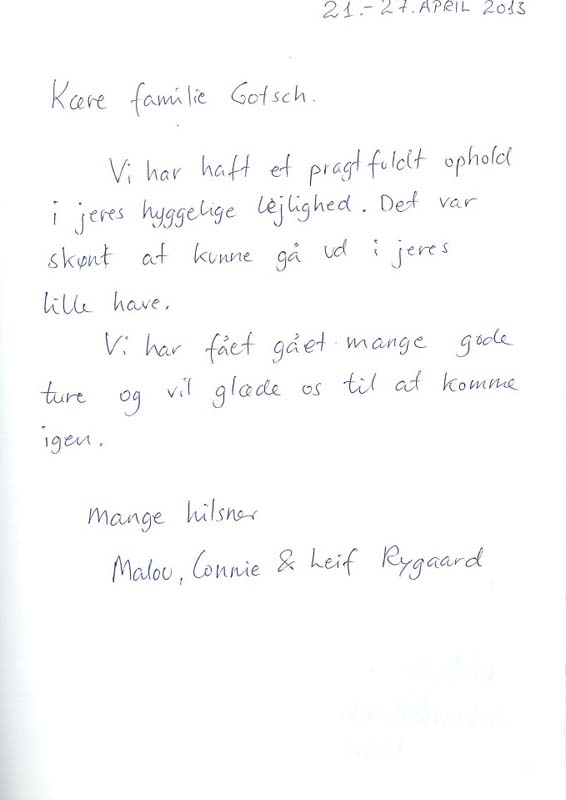 21.-27. APRIL 2013
Kære familie Gotsch.
Vi har haft et pragtfuldt ophold
i jeres hyggelige lejlighed. Det var
skønt at kunne gå ud i jeres
lille have.
Vi har fået gået mange gode
ture og vil glæde os til at komme
igen.
Mange hilsner
Malou, Connie & Leif Rygaard